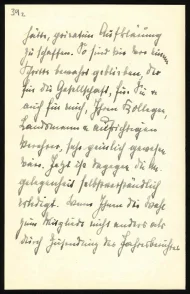 39 2
hätte, privatim Aufklärung
zu schaffen. So sind wir vor einem
Schritte bewahrt geblieben, der
für die Gesellschaft, für Sie u
auch für mich, Ihren Kollegen,
Landsmann u. aufrichtigen
Verehrer, sehr peinlich gewesen
wäre. Jetzt ist dagegen die An-
gelegenheit selbstverständlich
erledigt. Wenn Ihnen die Wahl
zum Mitgliede nicht anders als
durch Zusendung des Jahresberichtes